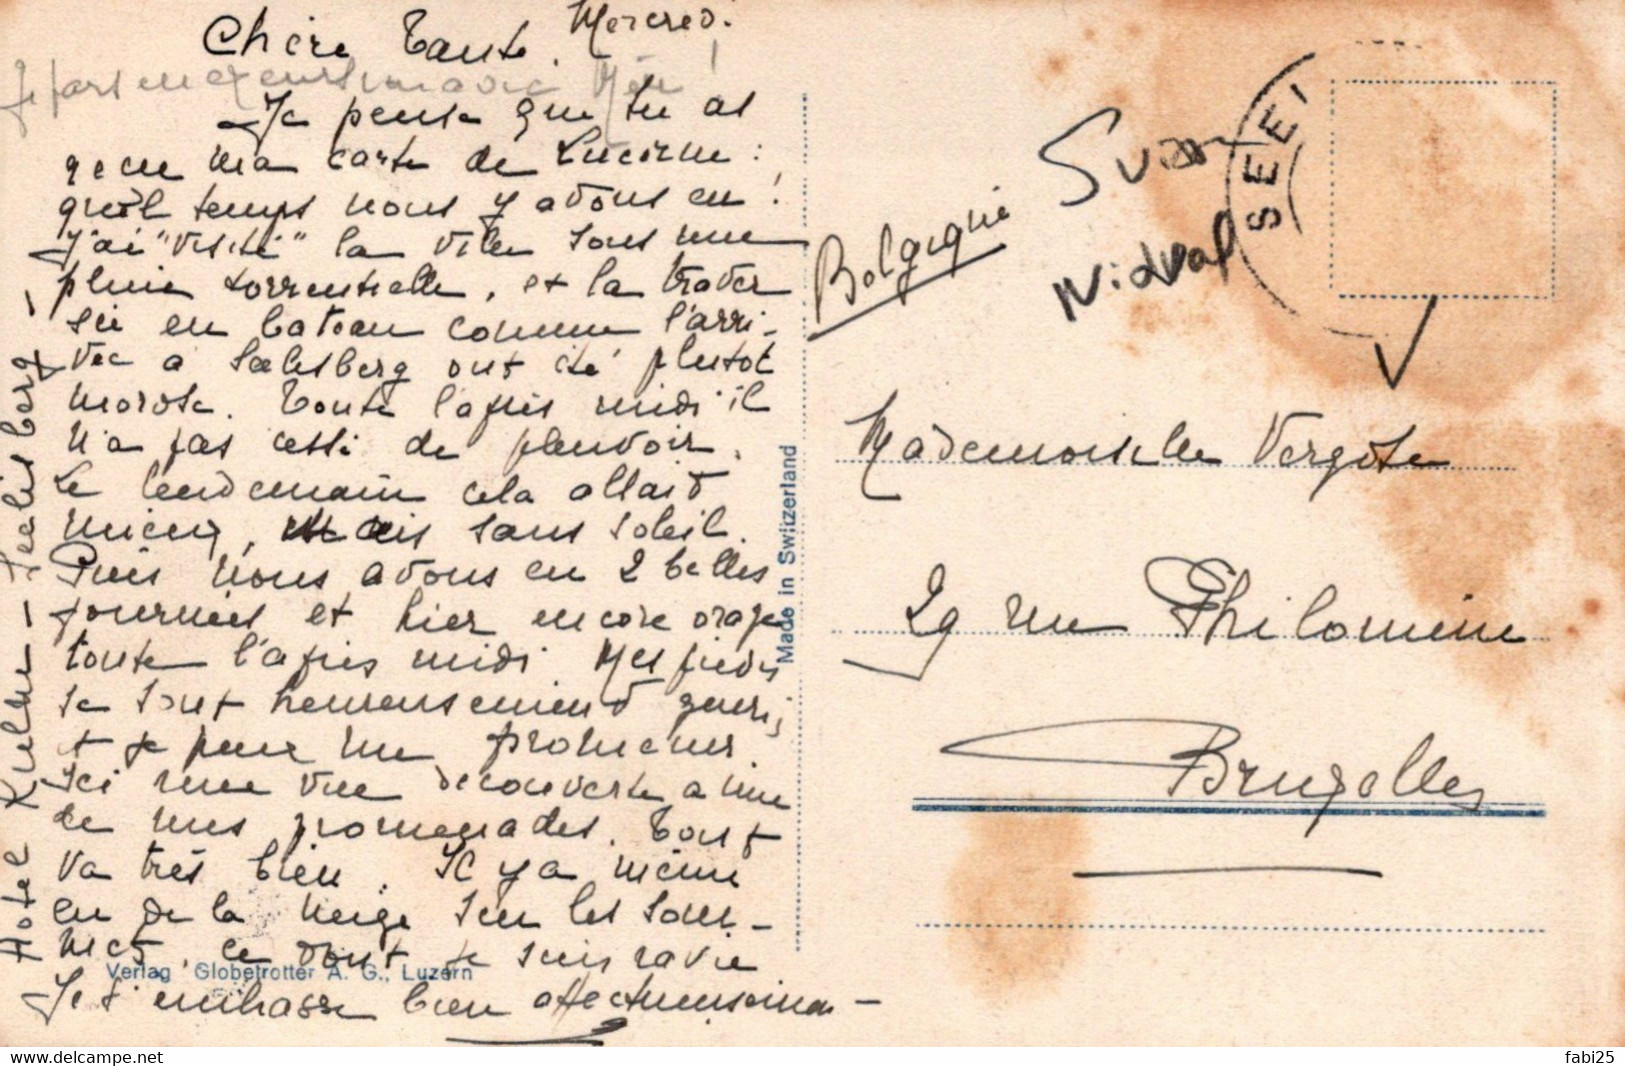 Mercredi
Chère Tante,
Je pars en excursion avec
Je pense que tu as
reçu ma carte de Lucerne :
quel temps nous y avons eu !
J'ai "visité" la ville sous une
pluie torrentielle, et la traver
sée en bateau comme l'arri-
vée a Seelisberg ont été plutot
morose. Toute l'après midi il
n'a pas cessé de pleuvoir.
Le lendemain cela allait
mieux, mais sans soleil.
Puis nous avons eu 2 belles
journées et hier encore orage
toute l'après midi. Mes pieds
se sont heureusement guéris
et je peux me promener.
Ici une vue découverte a une
de mes promenades. Tout
va très bien. Il y a même
eu de la neige sur les som-
mets, ce dont je suis ravie
Je t'embrasse bien affectueusement
Hotel Kulm - Seelisberg -
Verlag Globetrotter A. G., Luzern
Made in Switzerland
SEELI
Belgique
Nidwal
Mademoiselle Vergote
29 rue Philomène
Bruxelles
fabi25
https://www.delcampe.net